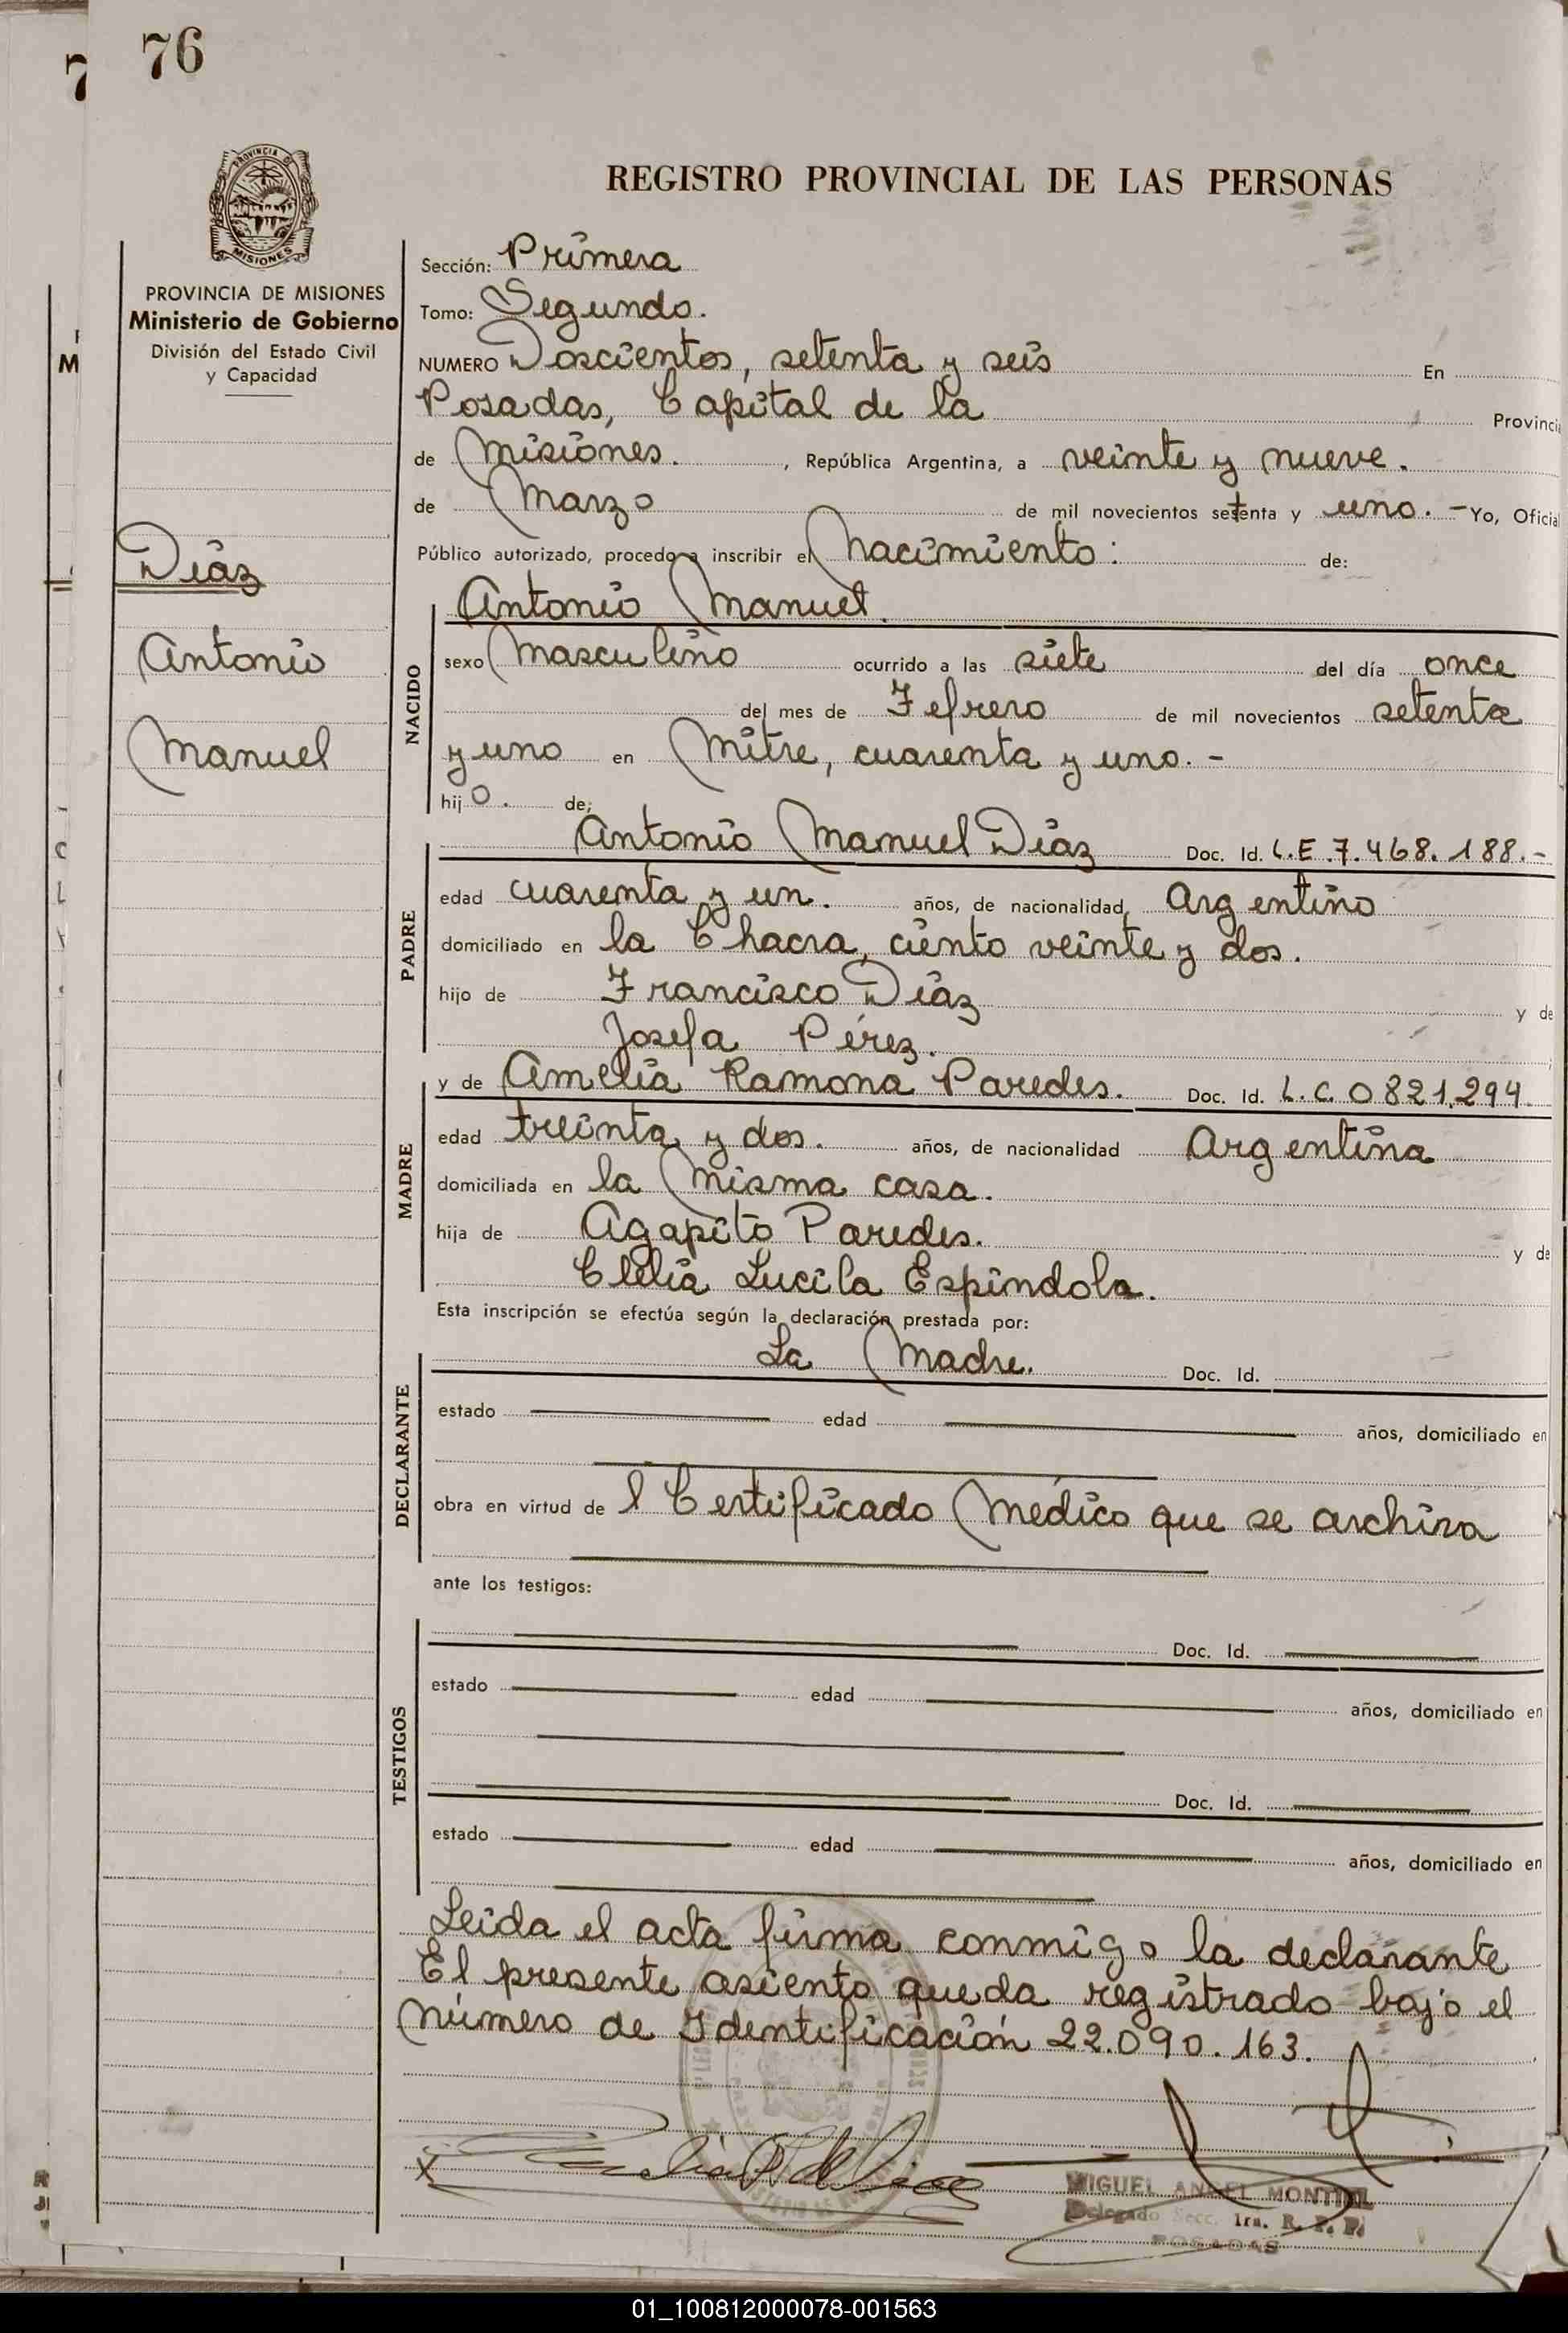 76
REGISTRO PROVINCIAL DE LAS PERSONAS
PROVINCIA DE MISIONES
Ministerio de Gobierno
División del Estado Civil
y Capacidad
Díaz
Antonio
Manuel
Sección: Primera
Tomo: Segundo.
NUMERO Doscientos, setenta y seis En
Posadas, Capital de la Provincia
de Misiones. , República Argentina, a veinte y nueve.
de Marzo de mil novecientos setenta y uno. - Yo, Oficial
Público autorizado, procedo a inscribir el Nacimiento: de:
Antonio Manuel
NACIDO
sexo Masculino ocurrido a las siete del día once
del mes de Febrero de mil novecientos setenta
y uno en Mitre, cuarenta y uno. -
hijo. de;
Antonio Manuel Díaz Doc. Id. L.E. 7.468.188.-
PADRE
edad cuarenta y un. años, de nacionalidad Argentino
domiciliado en la Chacra, ciento veinte y dos.
hijo de Francisco Díaz y de
Josefa Pérez.
y de Amelia Ramona Paredes. Doc. Id. L.C. 0821.294.
MADRE
edad treinta y dos. años, de nacionalidad Argentina
domiciliada en la Misma casa.
hija de Agapito Paredes. y de
Clelia Lucila Espíndola.
Esta inscripción se efectúa según la declaración prestada por:
La Madre. Doc. Id.
DECLARANTE
estado edad años, domiciliado en
obra en virtud de l Certificado Médico que se archiva
ante los testigos:
TESTIGOS
Doc. Id.
estado edad años, domiciliado en
Doc. Id.
estado edad años, domiciliado en
Leida el acta firma conmigo la declarante
El presente asiento queda registrado bajo el
Número de Identificación 22.090.163.
MIGUEL ANGEL MONTIEL
Delegado Secc. 1ra. R. P. P.
POSADAS
01_100812000078-001563